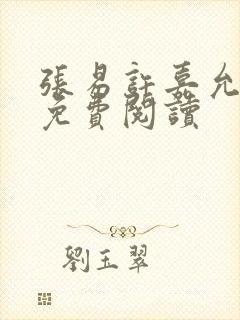 張易許嘉允
免費閱讀
劉玉翠